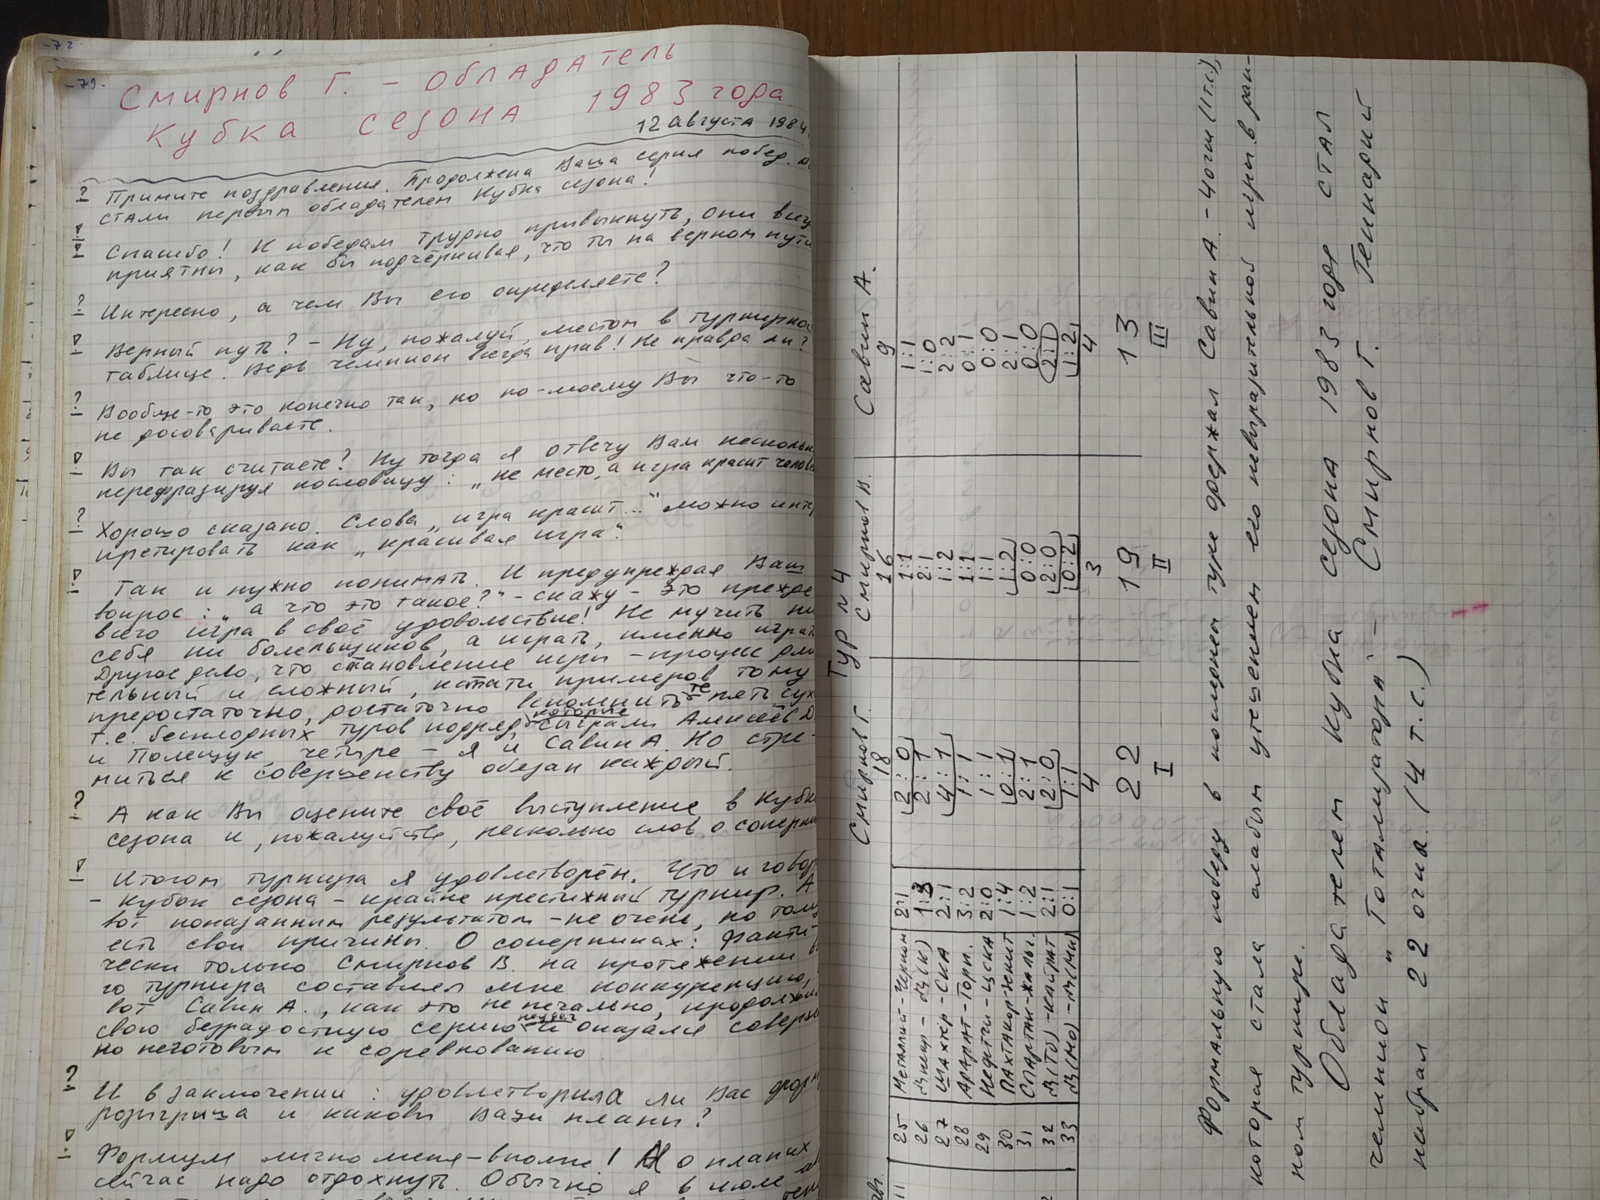 -72-
-79-
Смирнов Г. - обладатель
Кубка сезона 1983 года
12 августа 1984
? Примите поздравления. Продолжена Ваша серия побед.
стали первым обладателем Кубка сезона!
! Спасибо! К победам трудно привыкнуть, они всегда
приятны, как бы подчёркивая, что ты на верном пути
? Интересно, а чем Вы его определяете?
! Верный путь? - Ну, пожалуй, местом в турнирной
таблице. Ведь чемпион всегда прав! Не правда ли?
? Вообще-то это конечно так, но по-моему Вы что-то
не договариваете.
! Вы так считаете? Ну тогда я отвечу Вам несколько
перефразируя пословицу: „не место, а игра красит челове
? Хорошо сказано. Слова „игра красит..." можно инте
претировать как „красивая игра".
! Так и нужно понимать. И предупреждая Ваш
вопрос: „а что это такое?" - скажу - это прежде
всего игра в своё удовольствие! Не мучить ни
себя ни болельщиков, а играть, именно играть
Другое дело, что становление игры - процесс дли
тельный и сложный, кстати примеров тому
предостаточно, достаточно вспомнить те пять сух
т.е. бесплодных туров подряд, которые сыграли Алексеев Д.
и Полещук четыре - я и Савин А. Но стре-
миться к совершенству обязан каждый.
? А как Вы оцените своё выступление в Кубке
сезона и, пожалуйста, несколько слов о соперни
! Итогом турнира я удовлетворён. Что и говор
- Кубок сезона - крайне престижный турнир. А
вот показанным результатом - не очень, но тому
есть свои причины. О соперниках: факти-
чески только Смирнов В. на протяжении в
го турнира составлял мне конкуренцию,
вот Савин А., как это не печально, продолжи
свою безрадостную серию неудач и оказался соверш
но неготовым к соревнованию.
? И в заключении: удовлетворила ли Вас форм
розыгрыша и каковы Ваши планы?
! Формула лично меня - вполне! А о планах
сейчас надо отдохнуть. Обычно я в июле
Тур №4
Смирнов Г. Смирнов В. Савин А.
18 16 9
25 Металлист-Черном 2:1 2:0 1:1 1:1
26 Днепр-Д(К) 1:3 2:1 2:1 1:0
27 Шахтер-СКА 2:1 4:1 1:2 2:2
28 Арарат-Торп. 3:2 1:1 1:1 0:1
29 Нефтчи-ЦСКА 2:0 1:1 1:1 0:0
30 Пахтакор-Зенит 1:4 0:1 1:2 2:1
31 Спартак-Жальг. 1:2 2:1 0:0 0:0
32 Д(Тб)-Кайрат 2:1 2:0 2:0 2:1
33 Д(Мо)-Д(Ми) 0:1 1:1 0:2 1:2
4 3 4
22 19 13
I II III
Формальную победу в последнем туре одержал Савин А. - 4 очка (1 т.с.),
которая стала слабым утешением его невыразительной игры в дан-
ном турнире.
Обладателем Кубка сезона 1983 года стал
чемпион „Тотализатора" - Смирнов Г. Геннадий
набрал 22 очка (14 т.с.)